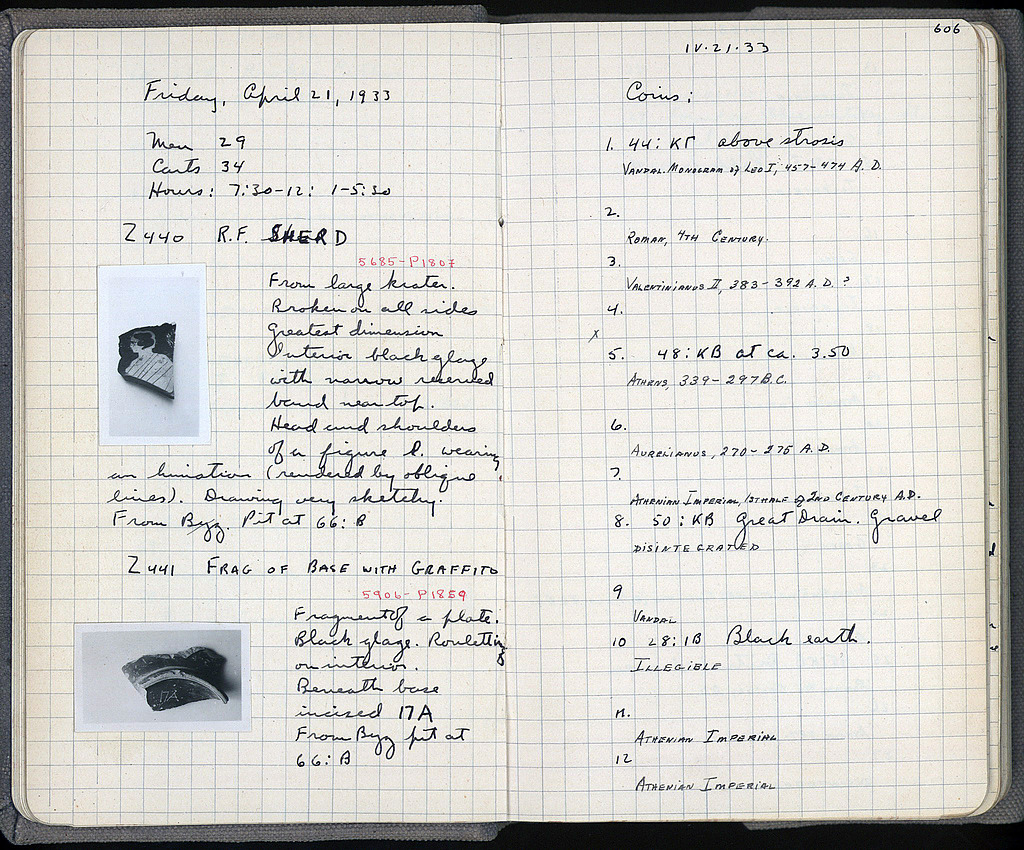 Friday, April 21, 1933
Men 29
Carts 34
Hours: 7:30-12: 1-5:30
Z 440 R.F. SHERD
5685-P1807
From large krater.
Broken on all sides
Greatest dimension
Interior black glaze
with narrow reserved
band near top.
Head and shoulders
of a figure l. wearing
an himation (rendered by oblique
lines). Drawing very sketchy.
From Byz. Pit at 66:B
Z 441 FRAG OF BASE WITH GRAFFITO
5906-P1859
Fragment of a plate.
Black glaze. Rouletting
on interior.
Beneath base
incised ΠA
From Byz pit at
66:B
606
IV.21.33
Coins:
1. 44: KΓ above strosis
VANDAL. MONOGRAM of LEO I, 457-474 A.D.
2.
ROMAN, 4TH CENTURY.
3.
VALENTINIANUS II, 383-392 A.D. ?
4.
x
5. 48: KB at ca. 3.50
ATHENS, 339-297 B.C.
6.
AURELIANUS, 270-275 A.D.
7.
ATHENIAN IMPERIAL, 1ST HALF of 2ND CENTURY A.D.
8. 50: KB Great Drain. Gravel
DISINTEGRATED
9
VANDAL
10 28: IB Black earth.
ILLEGIBLE
11.
ATHENIAN IMPERIAL
12
ATHENIAN IMPERIAL